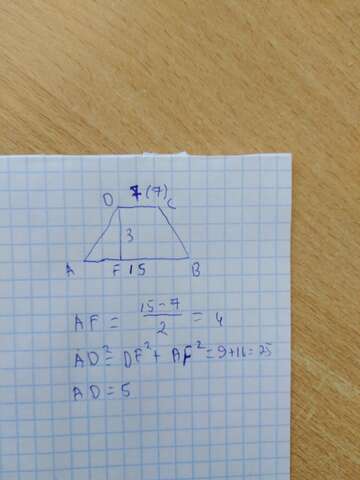 D 7 (7) C
3
A F 15 B
AF = 15-7/2 = 4
AD² = DF² + AF² = 9+16 = 25
AD = 5